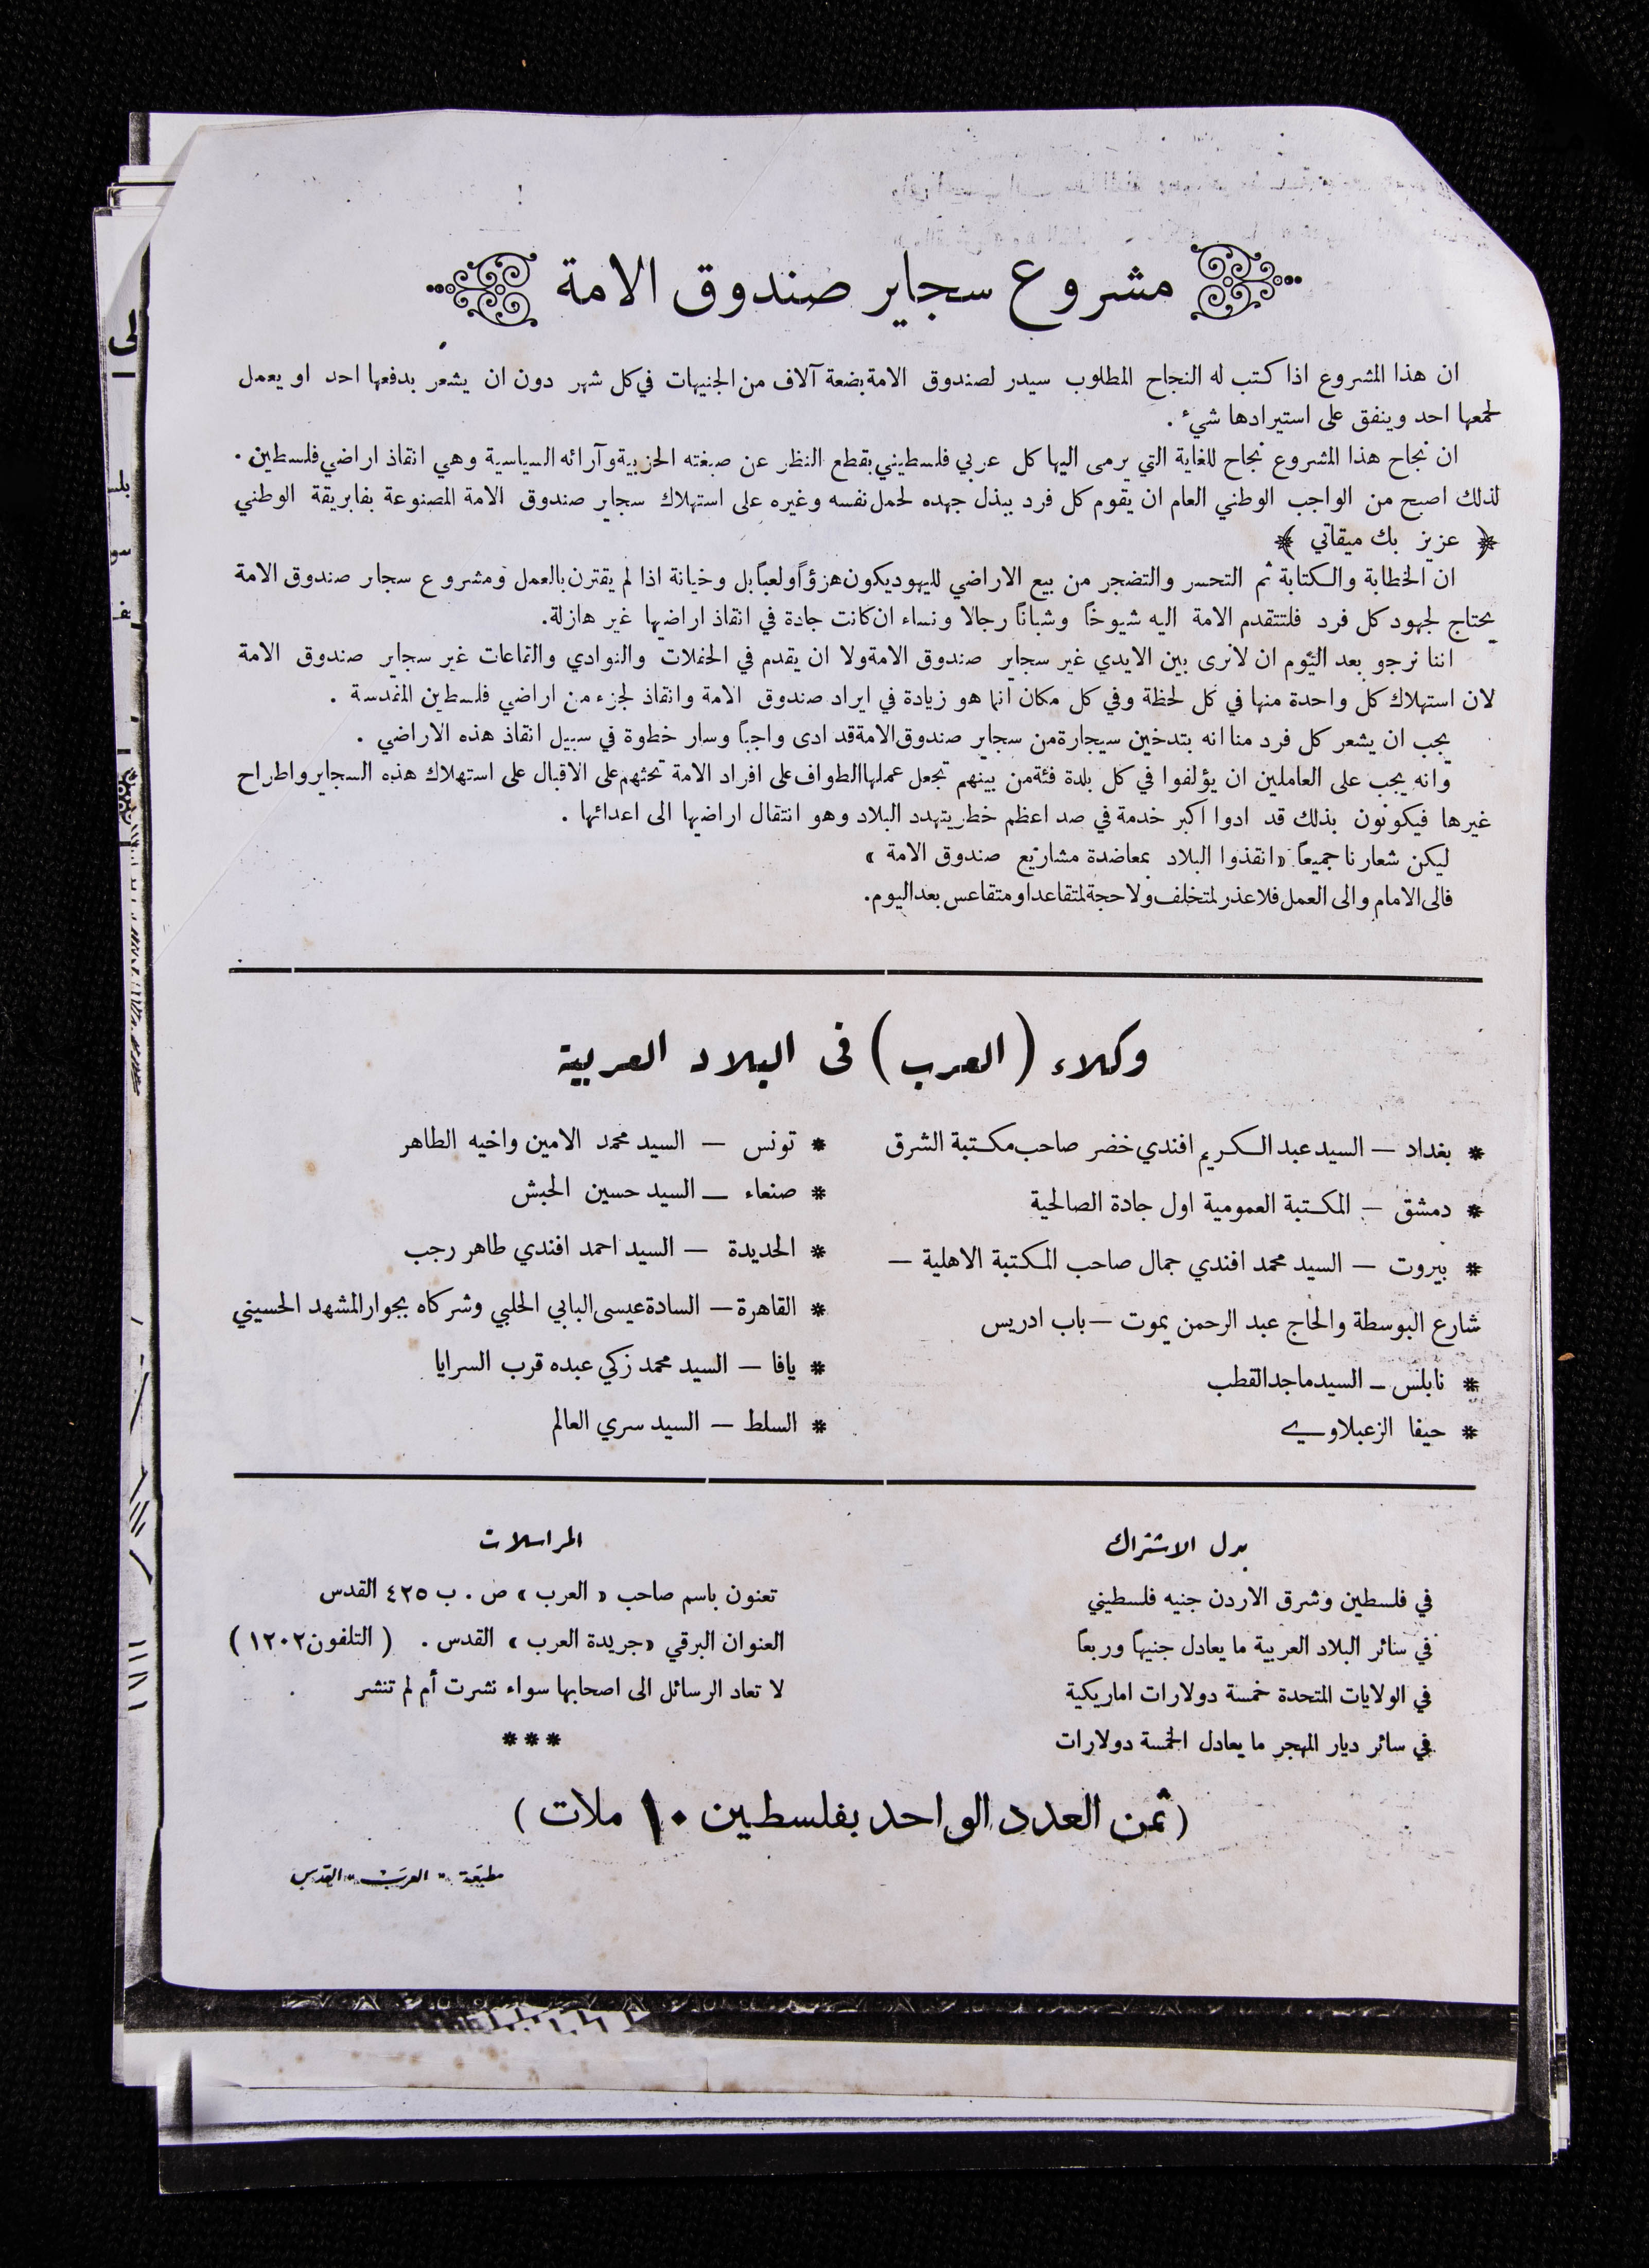 مشروع سجاير صندوق الامة
ان هذا المشروع اذا كتب له النجاح المطلوب سيدر لصندوق الامة بضعة آلاف من الجنيهات في كل شهر دون ان يشعر بدفعها احد او يعمل
لجمعها احد وينفق على استيرادها شيء .
ان نجاح هذا المشروع نجاح للغاية التي يرمى اليها كل عربي فلسطيني بقطع النظر عن صبغته الحزبية وآرائه السياسية وهي انقاذ اراضي فلسطين .
لذلك اصبح من الواجب الوطني العام ان يقوم كل فرد ببذل جهده لحمل نفسه وغيره على استهلاك سجاير صندوق الامة المصنوعة بفابريقة الوطني
﴿ عزيز بك ميقاتي ﴾
ان الخطابة والكتابة ثم التحسر والتضجر من بيع الاراضي لليهود يكون هزؤاً ولعباً بل وخيانة اذا لم يقترن بالعمل ومشروع سجاير صندوق الامة
يحتاج لجهود كل فرد فلتتقدم الامة اليه شيوخاً وشباناً رجالا ونساء ان كانت جادة في انقاذ اراضيها غير هازلة.
اننا نرجو بعد اليوم ان لا نرى بين الايدي غير سجاير صندوق الامة ولا ان يقدم في الحفلات والنوادي والقاعات غير سجاير صندوق الامة
لان استهلاك كل واحدة منها في كل لحظة وفي كل مكان انما هو زيادة في ايراد صندوق الامة وانقاذ لجزء من اراضي فلسطين المقدسة .
يجب ان يشعر كل فرد منا انه بتدخين سيجارة من سجاير صندوق الامة قد ادى واجباً وسار خطوة في سبيل انقاذ هذه الاراضي .
وانه يجب على العاملين ان يؤلفوا في كل بلدة فئة من بينهم تجعل عملها الطواف على افراد الامة تحثهم على الاقبال على استهلاك هذه السجاير واطراح
غيرها فيكونون بذلك قد ادوا اكبر خدمة في صد اعظم خطر يتهدد البلاد وهو انتقال اراضيها الى اعدائها .
ليكن شعارنا جميعاً: «انقذوا البلاد بمعاضدة مشاريع صندوق الامة »
فالى الامام والى العمل فلا عذر لمتخلف ولا حجة لمتقاعد او متقاعس بعد اليوم.
وكلاء ( العرب ) فى البلاد العربية
* بغداد — السيد عبد الكريم افندي خضر صاحب مكتبة الشرق
* دمشق — المكتبة العمومية اول جادة الصالحية
* بيروت — السيد محمد افندي جمال صاحب المكتبة الاهلية —
شارع البوسطة والحاج عبد الرحمن يموت — باب ادريس
* نابلس — السيد ماجد القطب
* حيفا الزعبلاوي
* تونس — السيد محمد الامين واخيه الطاهر
* صنعاء — السيد حسين الحبش
* الحديدة — السيد احمد افندي طاهر رجب
* القاهرة — السادة عيسى البابي الحلبي وشركاه بجوار المشهد الحسيني
* يافا — السيد محمد زكي عبده قرب السرايا
* السلط — السيد سري العالم
بدل الاشتراك
في فلسطين وشرق الاردن جنيه فلسطيني
في سائر البلاد العربية ما يعادل جنيهاً وربعاً
في الولايات المتحدة خمسة دولارات اماريكية
في سائر ديار المهجر ما يعادل الخمسة دولارات
المراسلات
تعنون باسم صاحب « العرب » ص . ب ٤٢٥ القدس
العنوان البرقي «جريدة العرب» القدس . ( التلفون ١٢٠٢ )
لا تعاد الرسائل الى اصحابها سواء نشرت أم لم تنشر
***
( ثمن العدد الواحد بفلسطين ١٠ ملات )
مطبَعة " العرب " القدس